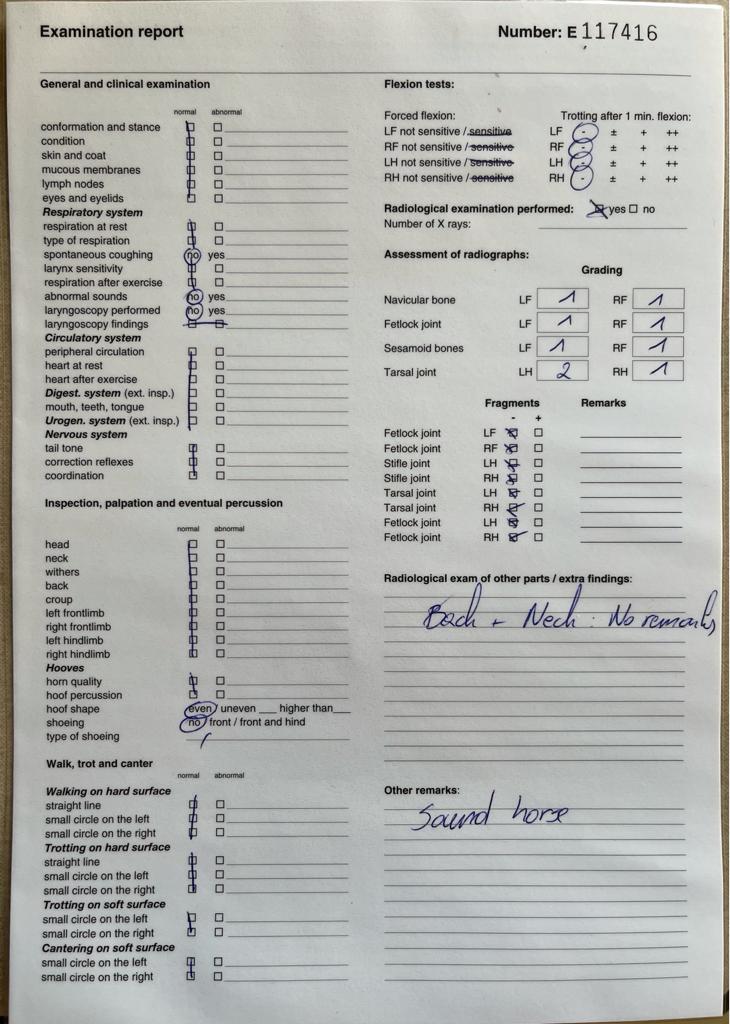 Examination report
Number: E 117416
General and clinical examination
normal abnormal
conformation and stance
condition
skin and coat
mucous membranes
lymph nodes
eyes and eyelids
Respiratory system
respiration at rest
type of respiration
spontaneous coughing no yes
larynx sensitivity
respiration after exercise
abnormal sounds no yes
laryngoscopy performed no yes
laryngoscopy findings
Circulatory system
peripheral circulation
heart at rest
heart after exercise
Digest. system (ext. insp.)
mouth, teeth, tongue
Urogen. system (ext. insp.)
Nervous system
tail tone
correction reflexes
coordination
Inspection, palpation and eventual percussion
normal abnormal
head
neck
withers
back
croup
left frontlimb
right frontlimb
left hindlimb
right hindlimb
Hooves
horn quality
hoof percussion
hoof shape even / uneven ___ higher than___
shoeing no / front / front and hind
type of shoeing /
Walk, trot and canter
normal abnormal
Walking on hard surface
straight line
small circle on the left
small circle on the right
Trotting on hard surface
straight line
small circle on the left
small circle on the right
Trotting on soft surface
small circle on the left
small circle on the right
Cantering on soft surface
small circle on the left
small circle on the right
Flexion tests:
Forced flexion: Trotting after 1 min. flexion:
LF not sensitive / sensitive LF - ± + ++
RF not sensitive / sensitive RF - ± + ++
LH not sensitive / sensitive LH - ± + ++
RH not sensitive / sensitive RH - ± + ++
Radiological examination performed: yes no
Number of X rays:
Assessment of radiographs:
Grading
Navicular bone LF 1 RF 1
Fetlock joint LF 1 RF 1
Sesamoid bones LF 1 RF 1
Tarsal joint LH 2 RH 1
Fragments Remarks
- +
Fetlock joint LF
Fetlock joint RF
Stifle joint LH
Stifle joint RH
Tarsal joint LH
Tarsal joint RH
Fetlock joint LH
Fetlock joint RH
Radiological exam of other parts / extra findings:
Back + Neck : No remarks
Other remarks:
Sound horse